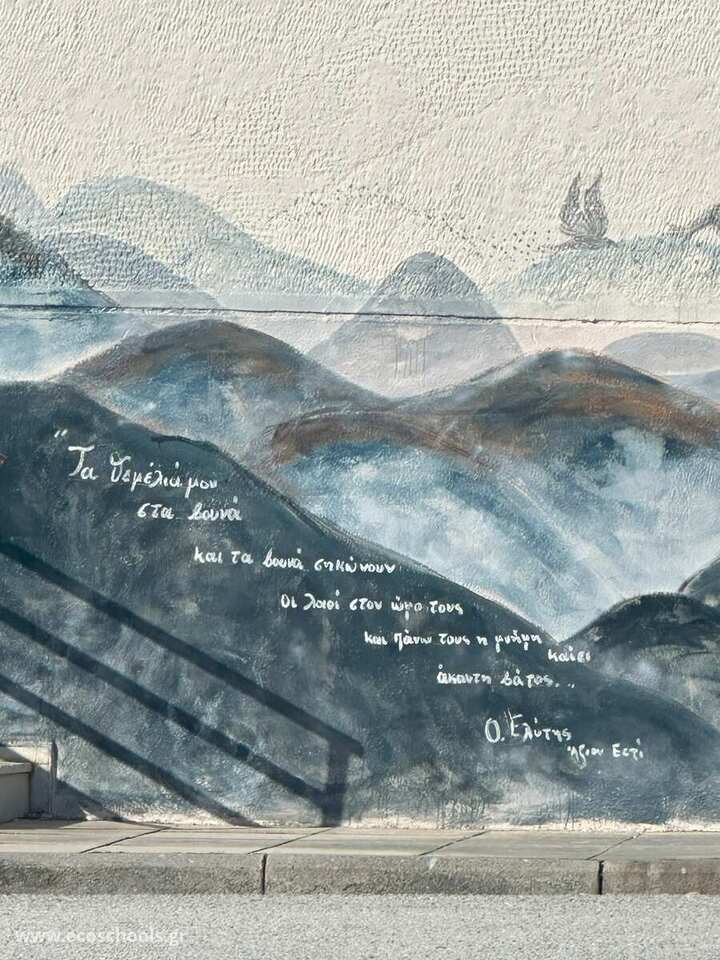 "Τα θεμέλιά μου
στα βουνά
και τα βουνά σηκώνουν
οι λαοί στον ώμο τους
και πάνω τους η μνήμη
καίει
άκαυτη βάτος...
Ο. Ελύτης
Άξιον Εστί
www.ecoschools.gr